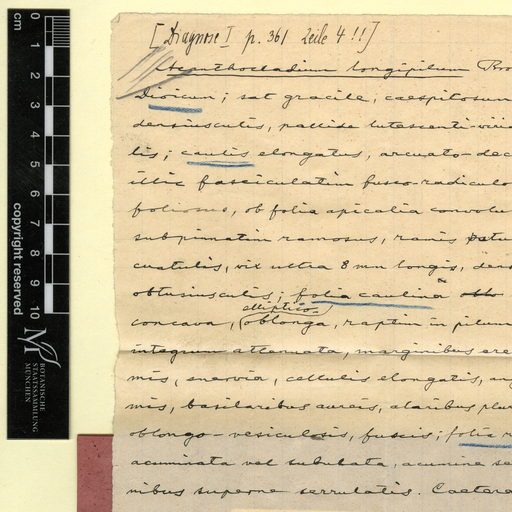 [Diagnose I p. 361 Zeile 4 !!]
Acanthocladium longipilum Bro
Dioicum; sat gracile, caespitosum
densiusculis, pallide lutescenti-viri
lis; caulis elongatus, arcuato-dec
illic fasciculatim fusco-radiculo
foliosus, ob folia apicalia convolu
subpinnatim ramosus, ramis patu
cuatulis, vix ultra 8 mm longis, dens
obtusiusculis; folia caulina
elliptico-
concava, oblonga, raptim in pilum
integrum attenuata, marginibus ere
mis, enervia, cellulis elongatis, an
mis, basilaribus aureis, alaribus plur
oblongo-vesiculosis, fuscis; folia r
acuminata vel subulata, acumine se
nibus superne serrulatis. Caetera
cm
0
1
2
3
4
5
6
7
8
9
10
copyright reserved
M
BOTANISCHE
STAATSSAMMLUNG
MÜNCHEN